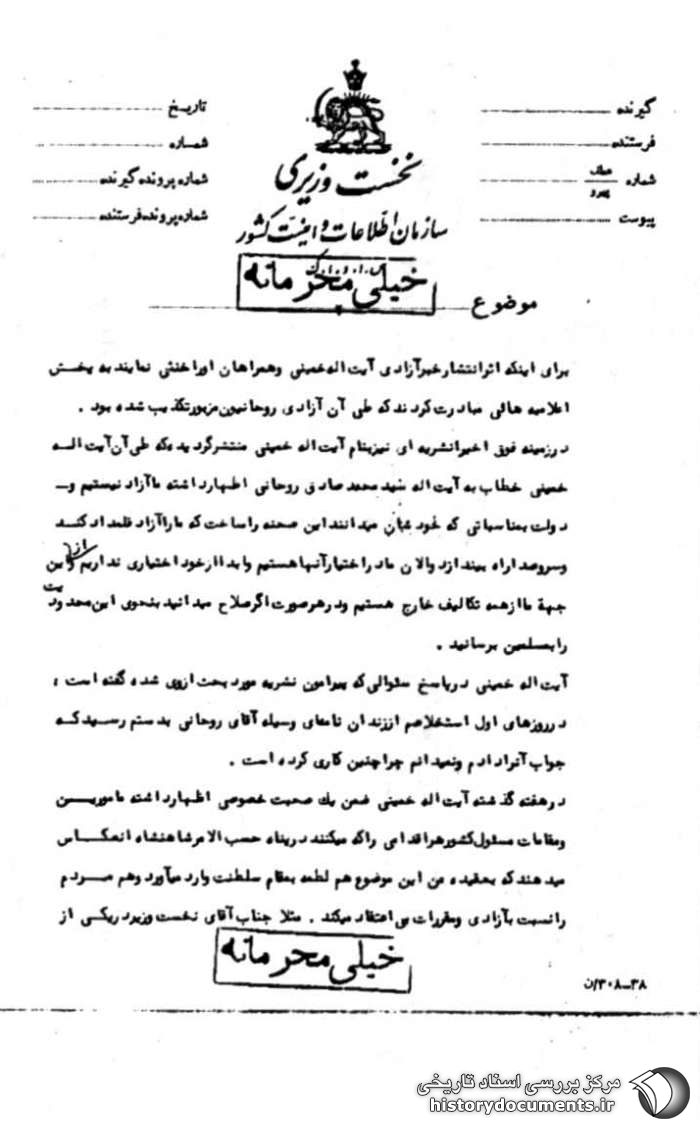 گیرنده
فرستنده
شماره عطف پیرو
پیوست
تاریخ
شماره
شماره پرونده گیرنده
شماره پرونده فرستنده
نخست وزیری
سازمان اطلاعات و امنیت کشور
س.ا.و.ا.ک
خیلی محرمانه
موضوع
برای اینکه اثر انتشار خبر آزادی آیت اله خمینی و همراهان او را خنثی نمایند به پخش
اعلامیه هائی مبادرت کردند که طی آن آزادی روحانیون مزبور تکذیب شده بود .
در زمینه فوق اخیرا نشریه ای نیز بنام آیت اله خمینی منتشر گردیده که طی آن آیت اله
خمینی خطاب به آیت اله سید محمد صادق روحانی اظهار داشته ما آزاد نیستیم و
دولت بمناسباتی که خودشان میدانند این صحنه را ساخت که ما را آزاد قلمداد کند
و سر و صدا راه بیندازد و الان ما در اختیار آنها هستیم و ابدا از خود اختیاری نداریم و از این
جهة ما از همه تکالیف خارج هستیم و در هر صورت اگر صلاح میدانید بنحوی این محدودیت
را بمسلمین برسانید .
آیت اله خمینی در پاسخ سئوالی که پیرامون نشریه مورد بحث از وی شده گفته است :
در روزهای اول استخلاصم از زندان نامه‌ای وسیله آقای روحانی بدستم رسید که
جواب آنرا دادم و نمیدانم چرا چنین کاری کرده است .
در هفته گذشته آیت اله خمینی ضمن یك صحبت خصوصی اظهار داشته مامورین
و مقامات مسئول کشور هر اقدامی را که میکنند در پناه حسب الامر شاهنشاه انعکاس
میدهند که بعقیده من این موضوع هم لطمه بمقام سلطنت وارد میآورد و هم مردم
را نسبت بآزادی و مقررات بی اعتقاد میکند . مثلا جناب آقای نخست وزیر در یکی از
خیلی محرمانه
۳۰۸-۳۸/ن
مرکز بررسی اسناد تاریخی
historydocuments.ir